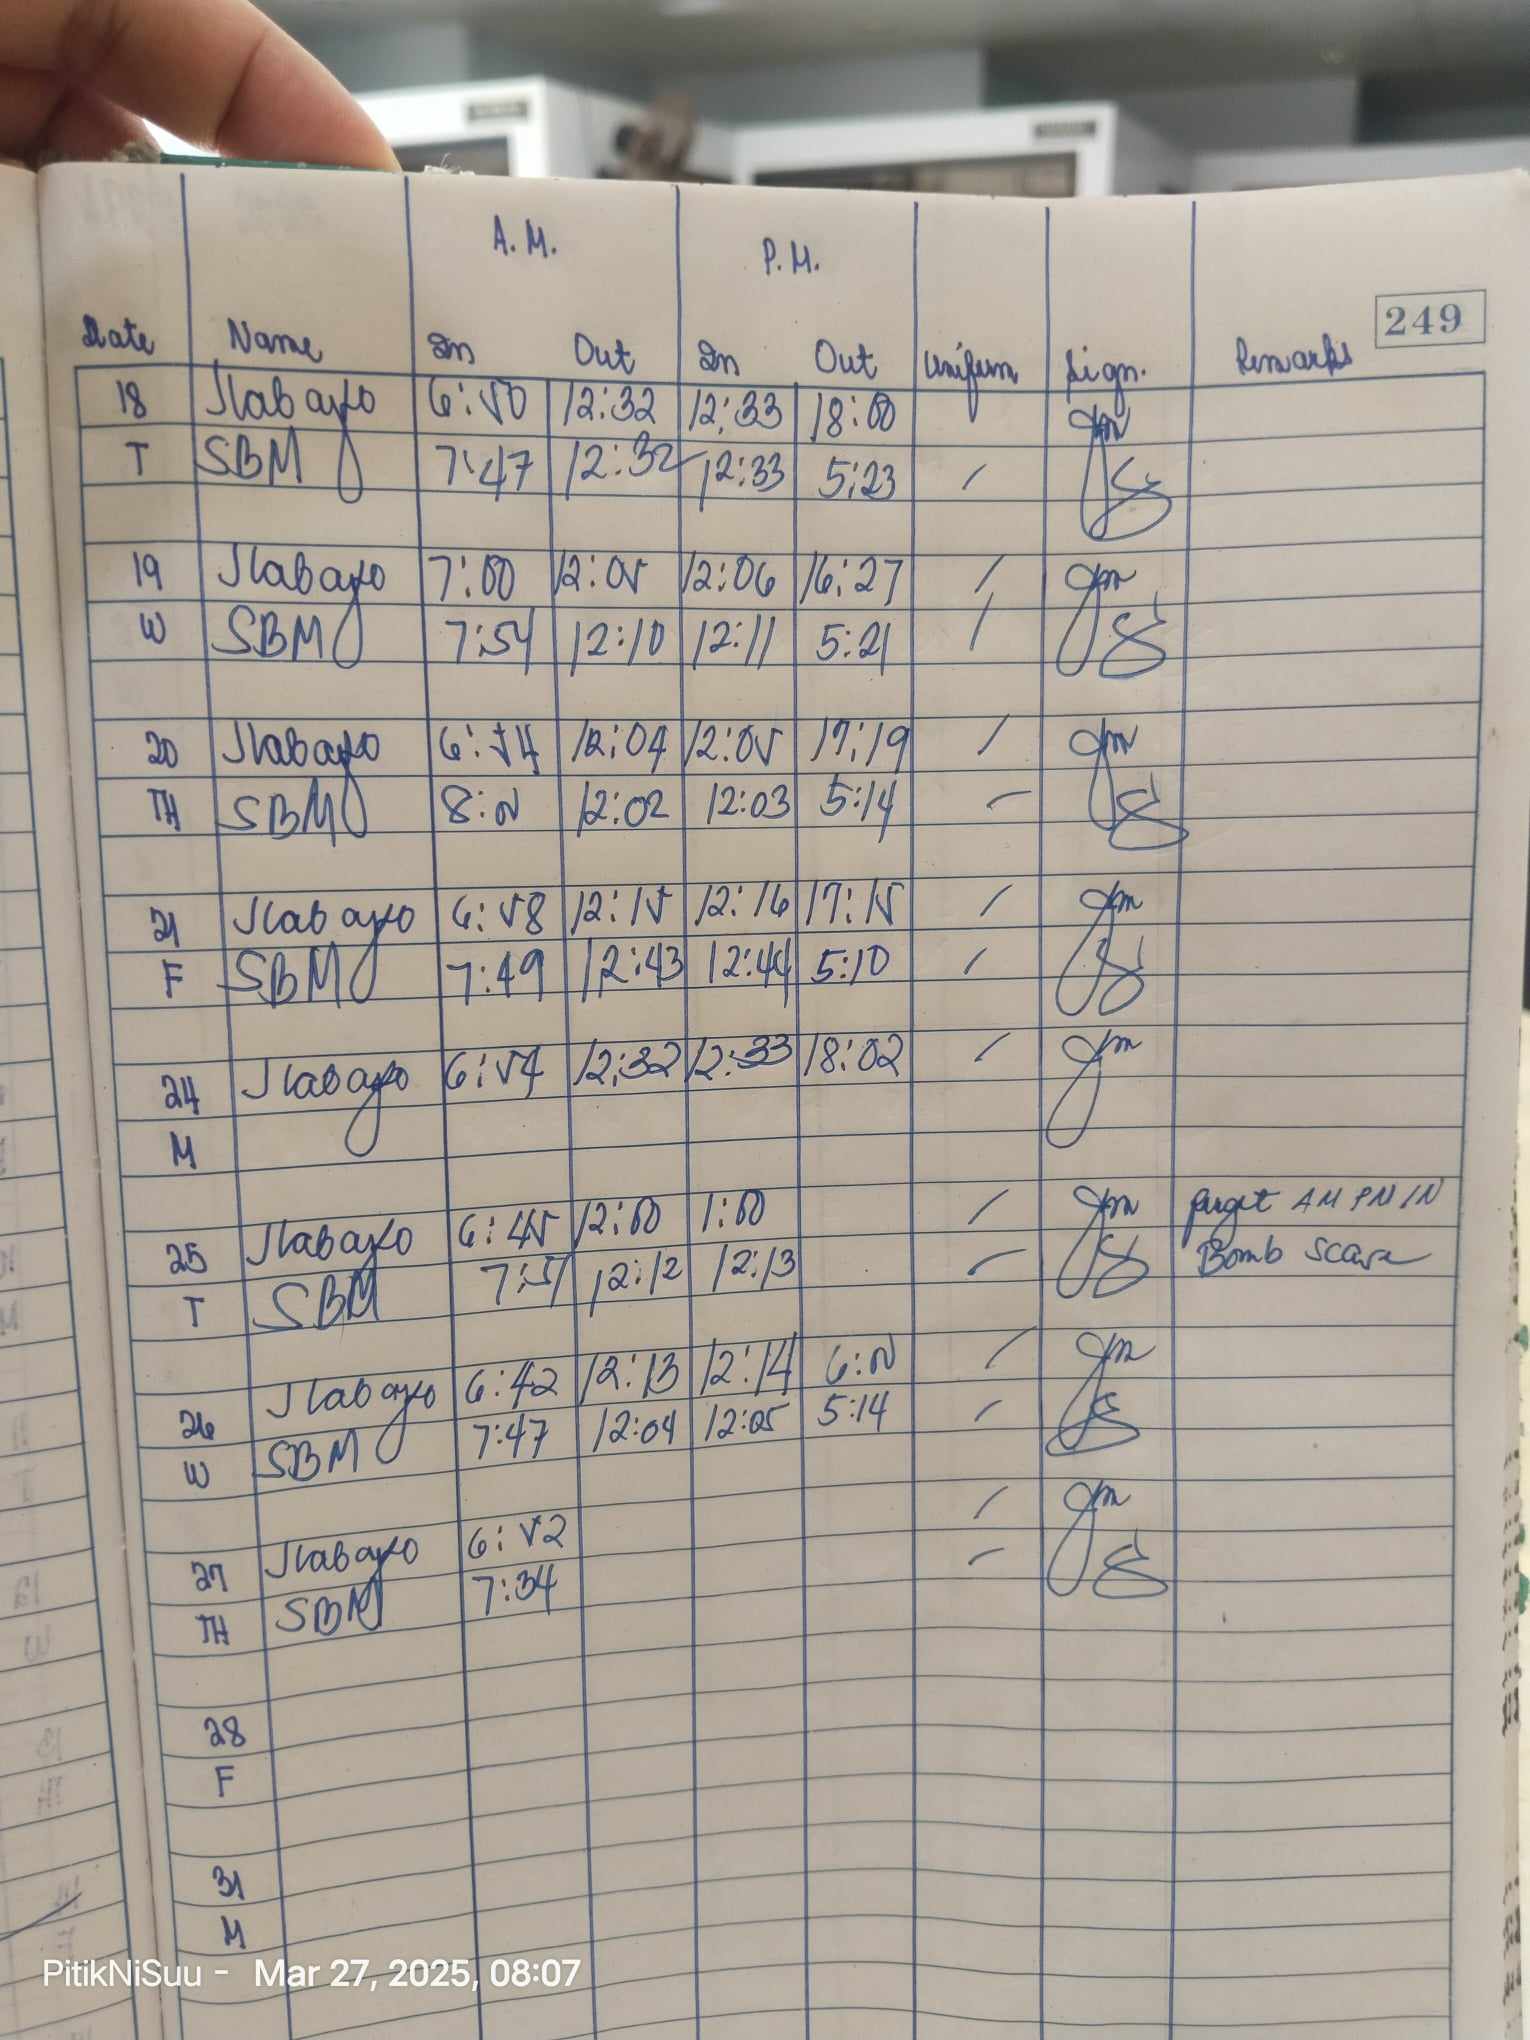 A.M. P.M.
249
Date Name In Out In Out Uniform Sign. Remarks
18 Jlabayo 6:50 12:32 12:33 18:00
T SBM 7:47 12:32 12:33 5:23 /
19 Jlabayo 7:00 12:05 12:06 16:27 /
W SBM 7:54 12:10 12:11 5:21 /
20 Jlabayo 6:54 12:04 12:05 17:19 /
TH SBM 12:02 12:03 5:14 /
21 Jlabayo 6:58 12:15 12:16 17:15 /
F SBM 7:49 12:43 12:44 5:10 /
24 Jlabayo 6:54 12:32 12:33 18:02 /
M
25 Jlabayo 6:45 12:00 1:00 /
T SBM 12:12 12:13 / Bomb Scare
26 Jlabayo 6:42 12:13 12:14 /
W SBM 7:47 12:04 12:05 5:14 /
27 Jlabayo 6:52 /
TH SBM 7:34 /
28
F
31
M
PitikNiSuu - Mar 27, 2025, 08:07